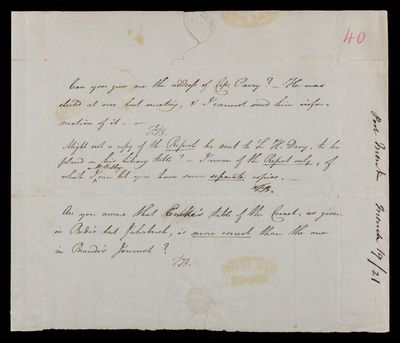 40
Can you give me the address of Cap. Parry? – He was
elected at our last meeting, & I cannot send him infor-
mation of it. –
FB.
Might not a copy of the Report be sent to Sir H. Davy, to be
placed on his library table? – I mean of the Report only, of
which I can let you have some separate copies. –
FB.
Are you aware that Encke's table of the Comet, as given
in Bode's last Jahrbuch, is more correct than the one
in Brande's Journal?
FB.
March 19/21